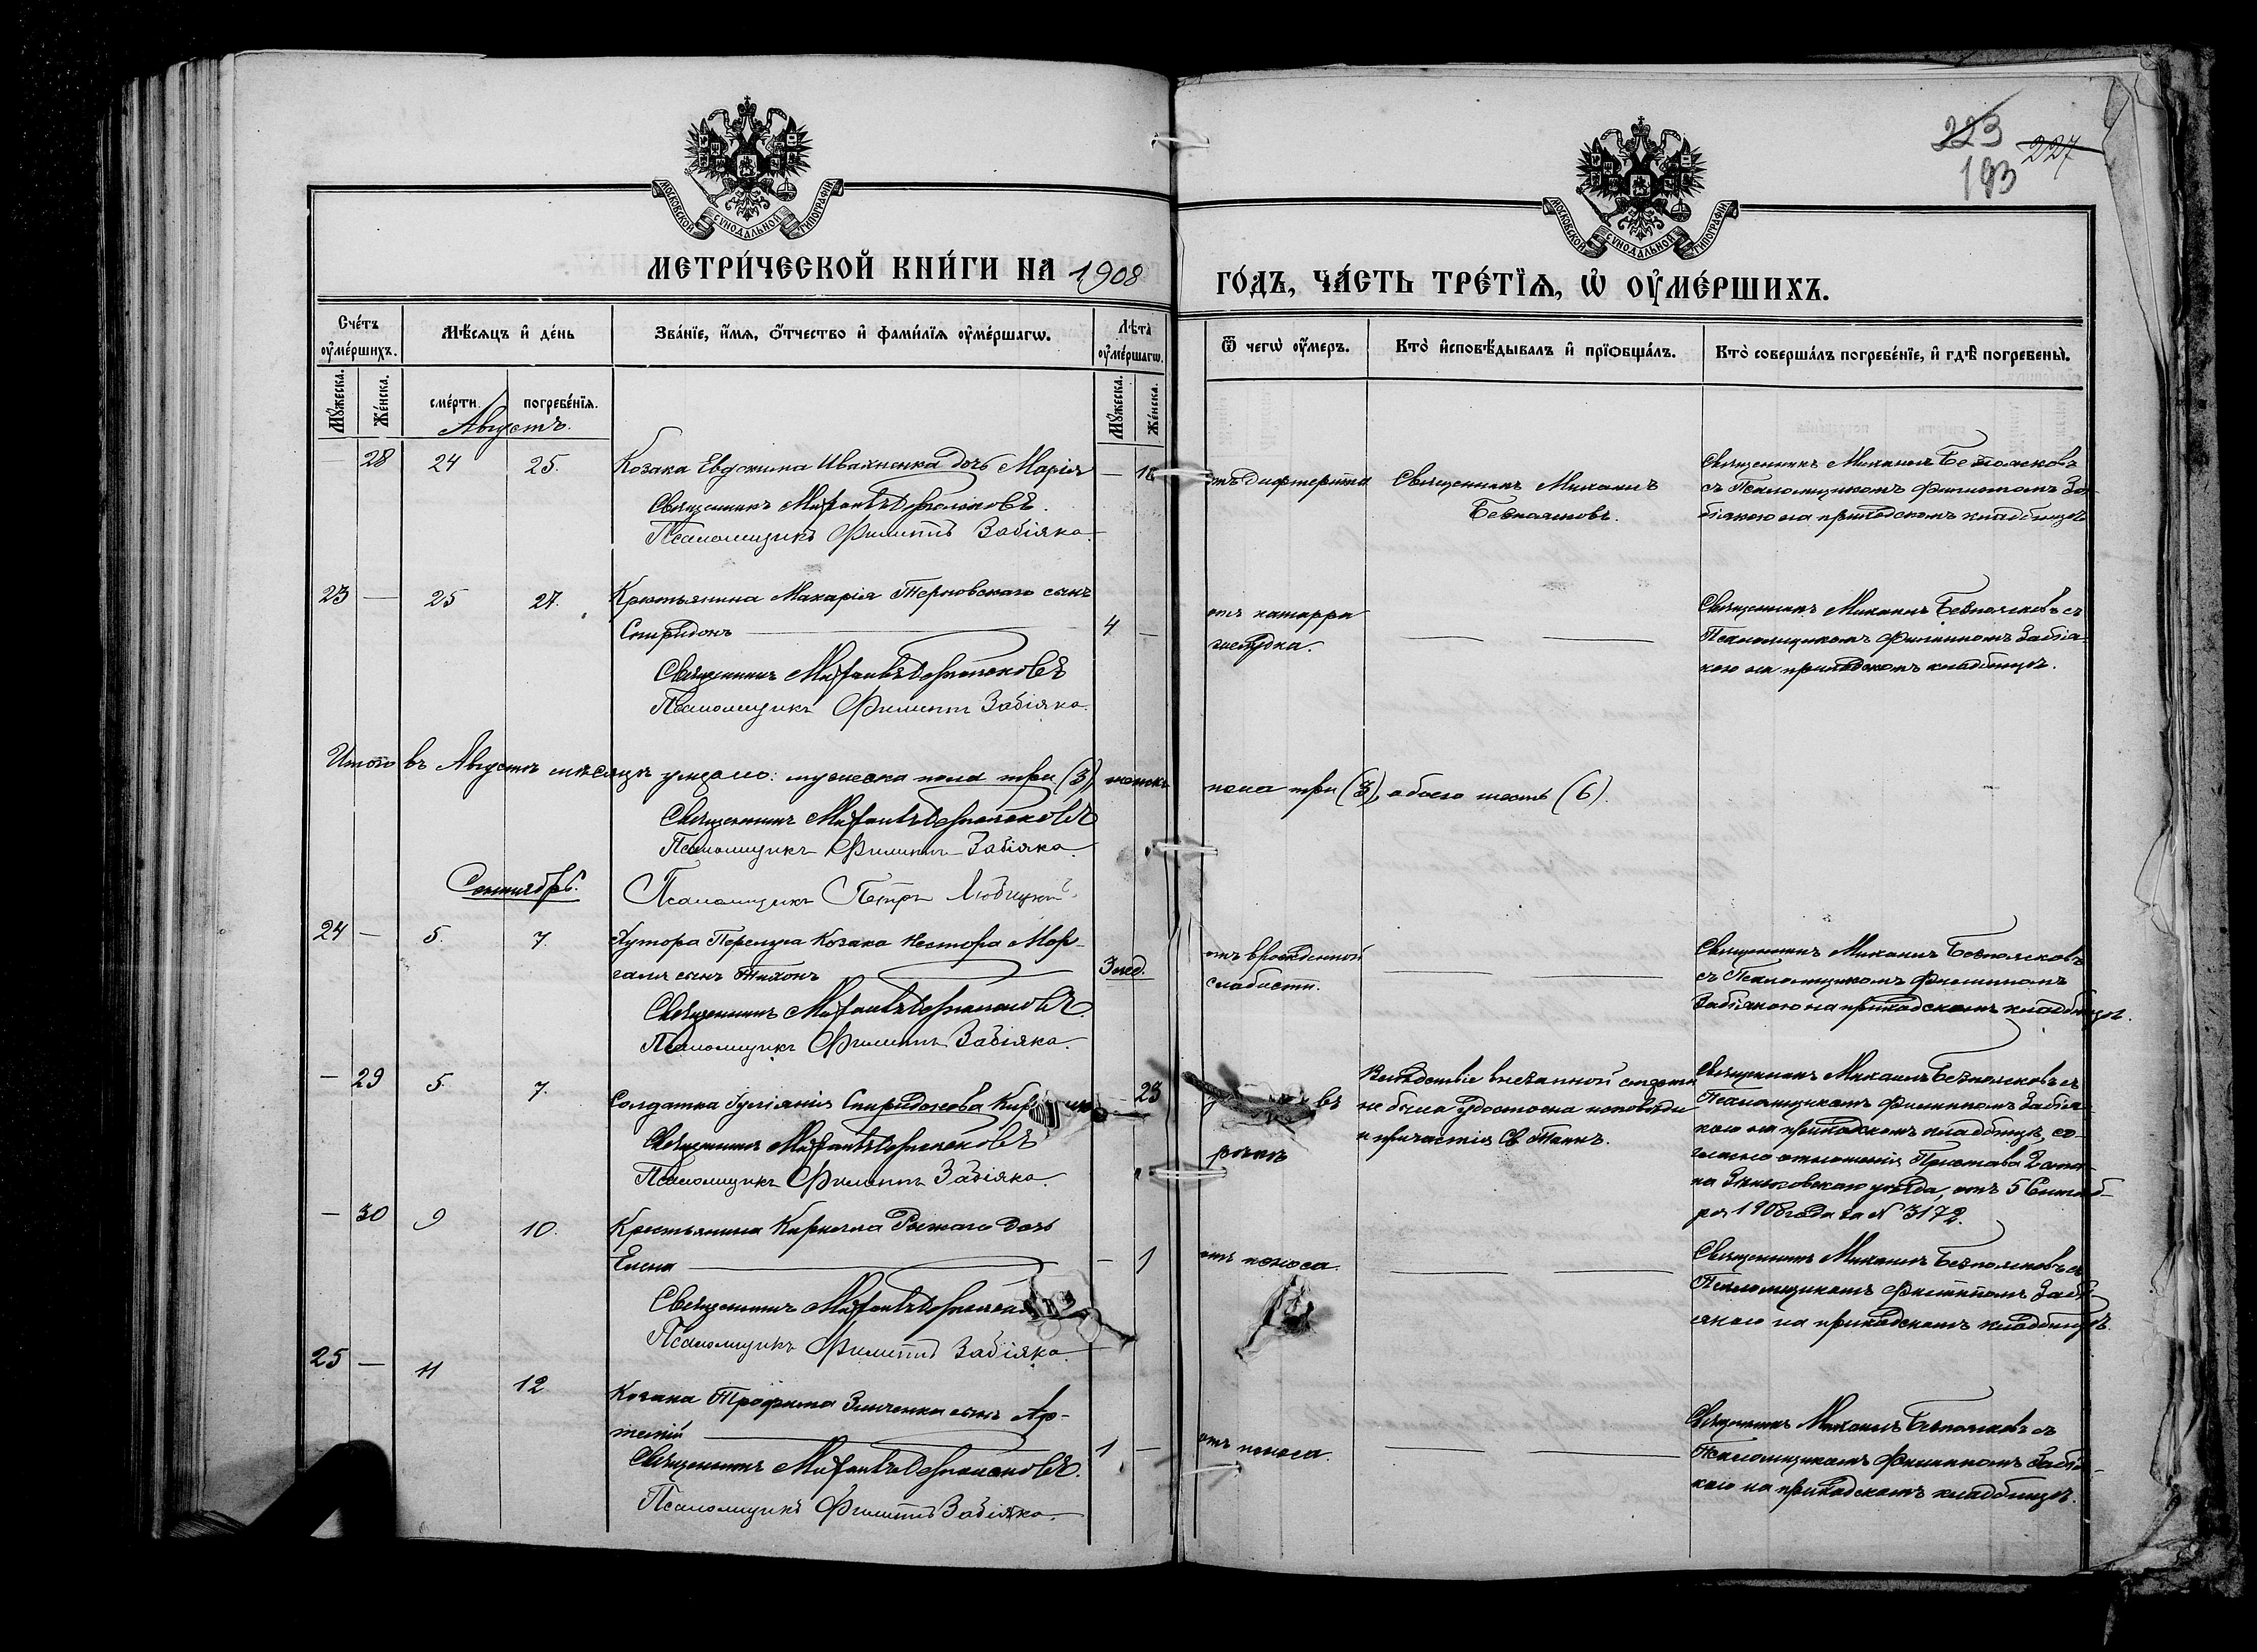 223 227
193
МОСКОВСКОЙ СѴНОДАЛЬНОЙ ТИПОГРАФІИ
МОСКОВСКОЙ СѴНОДАЛЬНОЙ ТИПОГРАФІИ
МЕТРИ́ЧЕСКОЙ КНИ́ГИ НА 1908
ГО́ДЪ, ЧА́СТЬ ТРЕ́ТІѦ, Ѡ҆ ОУ҆МЕ́РШИХЪ.
Сче́тъ оу҆ме́ршихъ.
Мѣ́сяцъ и҆ де́нь
Зва́нїе, и҆́мѧ, ѻ҆́тчество и҆ фами́лїѧ оу҆ме́ршагѡ.
Лѣта̀ оу҆ме́ршагѡ.
Ѿ чегѡ̀ оу҆́меръ.
Кто̀ и҆сповѣ́дывалъ и҆ прїѻбща́лъ.
Кто̀ соверша́лъ погребе́нїе, и҆ гдѣ̀ погребены̀.
Мꙋ́жеска.
Же́нска.
сме́рти.
погребе́нїѧ.
Мꙋ́жеска.
Же́нска.
Августъ.
— 28 24 25. Козака Евдокима Ивахненка дочь Марія —
Священникъ Михаилъ Безпоясковъ.
Псаломщикъ Филиппъ Забіяка.
отъ дифтерита
Священникъ Михаилъ
Безпоясковъ.
Священникъ Михаилъ Безпоясковъ
съ Псаломщикомъ Филиппомъ За-
біякою на приходскомъ кладбищѣ
23 — 25 27. Крестьянина Макарія Терновского сынъ
Спиридонъ — 4 —
Священникъ Михаилъ Безпоясковъ
Псаломщикъ Филиппъ Забіяка.
отъ катарра
желудка.
— —
Священникъ Михаилъ Безпоясковъ съ
Псаломщикомъ Филиппомъ Забія-
кою на приходскомъ кладбищѣ.
Итого въ Августѣ мѣсяцѣ умерло: мужеска пола три (3), женска
пола три (3), обоего шесть (6).
Священникъ Михаилъ Безпоясковъ
Псаломщикъ Филиппъ Забіяка.
Сентябрь.
Псаломщикъ Петръ Любицкій
24 — 5. 7. Хутора Перелуга Козака Нестора Мор-
галя сынъ Тихонъ — 3 нед.
Священникъ Михаилъ Безпоясковъ.
Псаломщикъ Филиппъ Забіяка.
отъ врожденной
слабости.
—
Священникъ Михаилъ Безпоясковъ
съ Псаломщикомъ Филиппомъ
Забіякою на приходскомъ кладбищѣ.
— 29 5. 7. Солдатка Іуліанія Спиридонова —
Священникъ Михаилъ Безпоясковъ
Псаломщикъ Филиппъ Забіяка.
въ
рѣкѣ
Вслѣдствіе внезапной смерти
не была удостоена исповѣди
и причастія Св. Таинъ.
Священникъ Михаилъ Безпоясковъ съ
Псаломщикомъ Филиппомъ Забія-
кою на приходскомъ кладбищѣ, со-
гласно отношенія Пристава 2 ста-
на Зѣньковскаго уѣзда, отъ 5 Сентяб-
ря 1908 года за № 3172.
— 30 9 10. Крестьянина Кирилла Рыжаго дочь
Елена — — 1
Священникъ Михаилъ
Псаломщикъ Филиппъ Забіяка.
отъ поноса.
— —
Священникъ Михаилъ Безпоясковъ съ
Псаломщикомъ Филиппомъ Забі-
якою на приходскомъ кладбищѣ.
25 — 11 12 Козака Трофима Зинченка сынъ Ар-
темій — 1 —
Священникъ Михаилъ Безпоясковъ.
Псаломщикъ Филиппъ Забіяка.
отъ поноса.
— —
Священникъ Михаилъ Безпоясковъ съ
Псаломщикомъ Филиппомъ Забія-
кою на приходскомъ кладбищѣ.